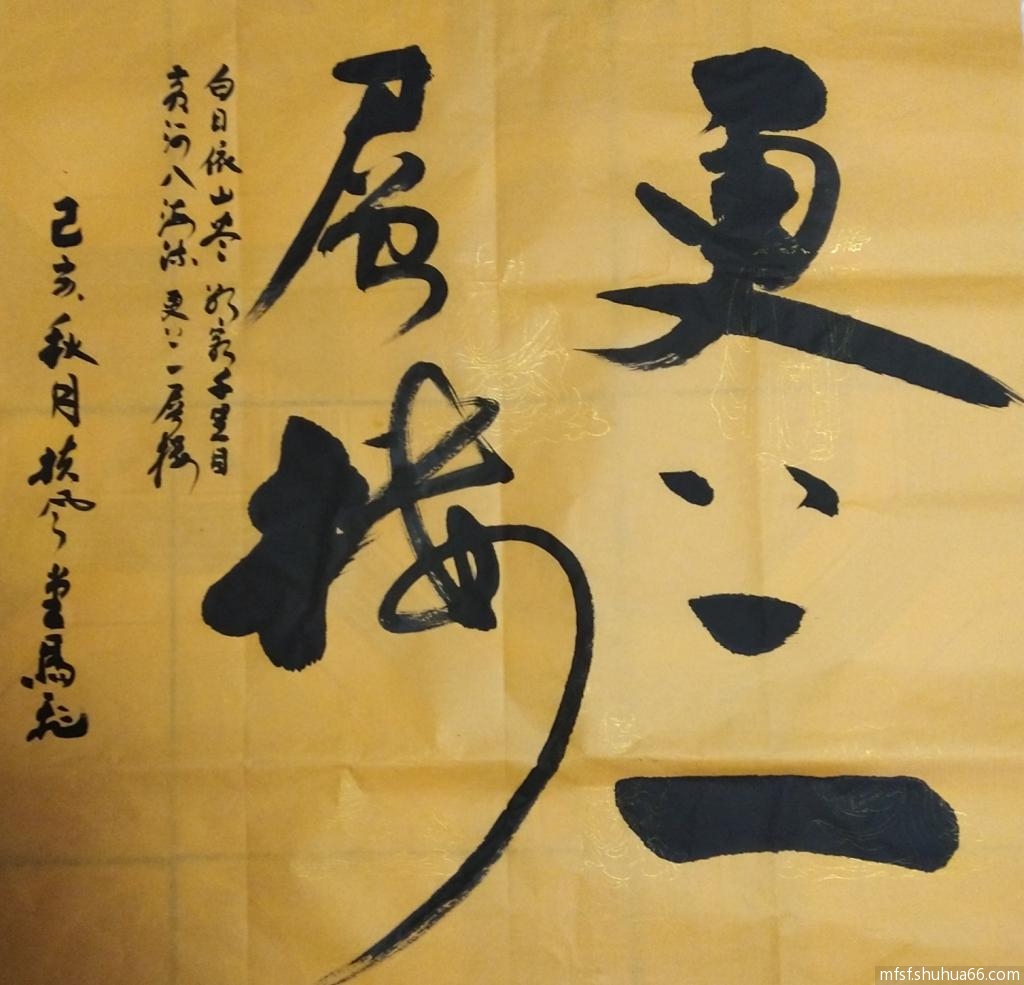 更上一
層楼
白日依山尽 欲穷千里目
黄河入海流 更上一层楼
己亥秋月扶风堂馬
mfsf.shuhua66.com